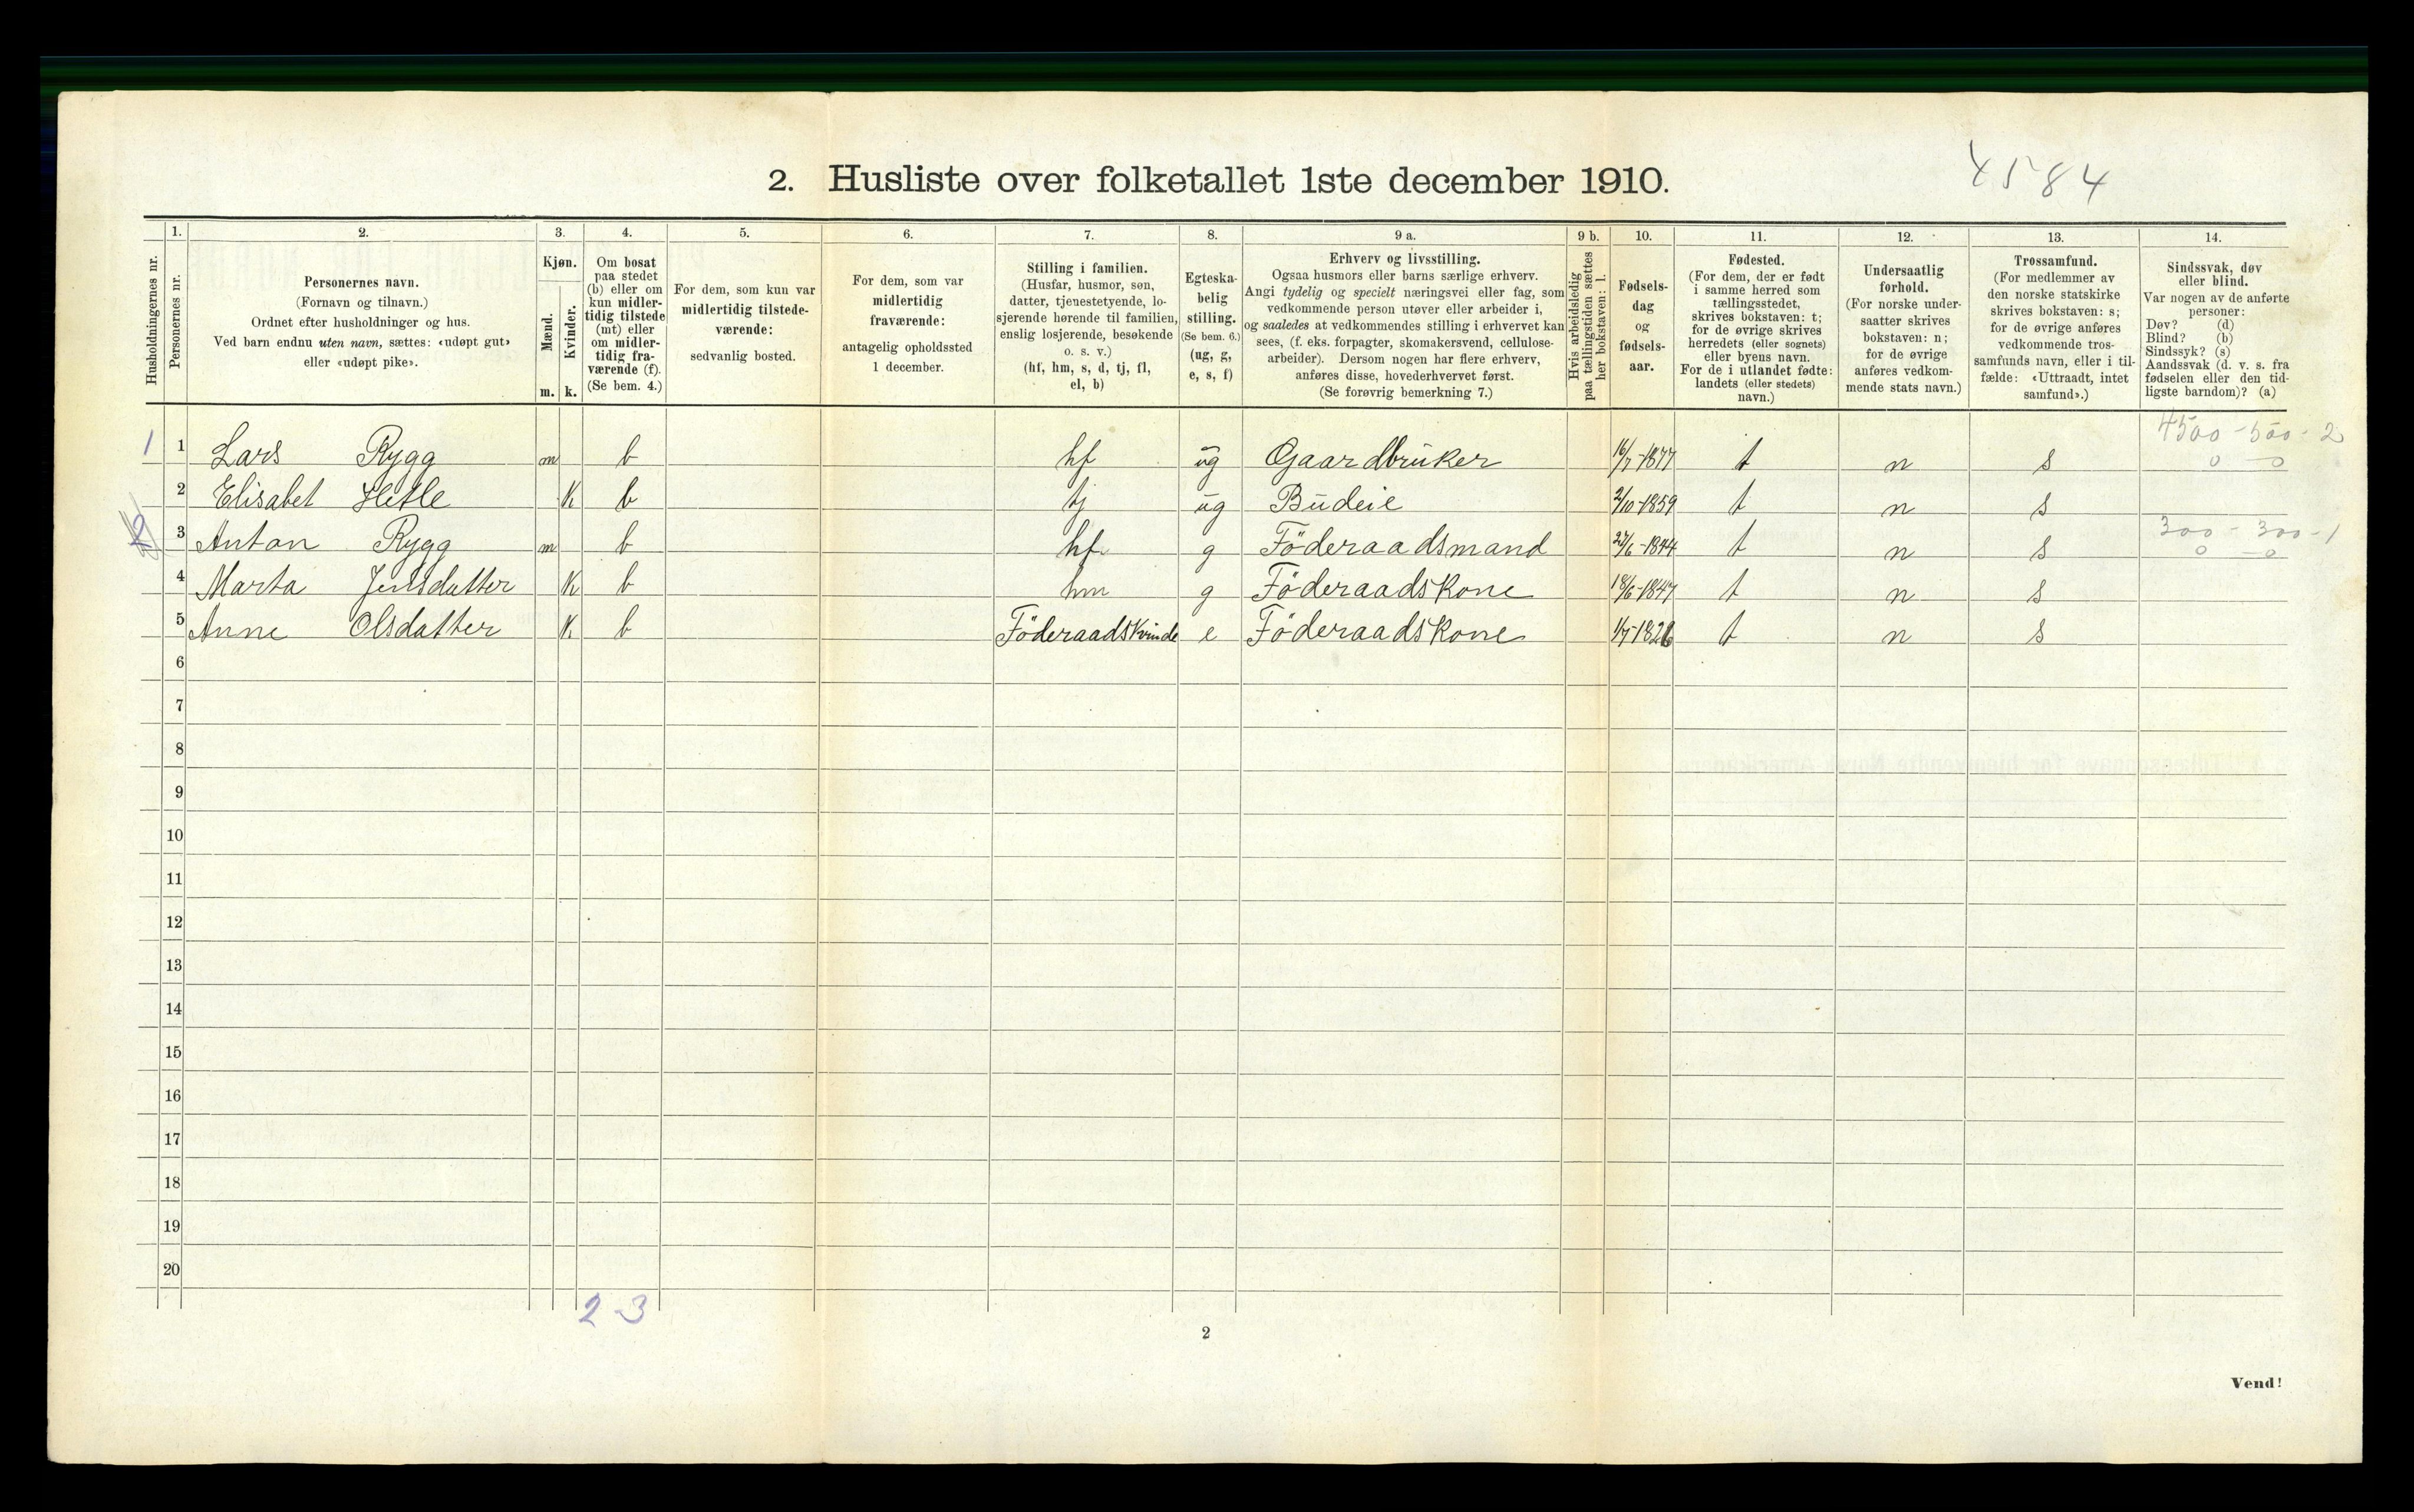 2. Husliste over folketallet 1ste december 1910.
4584
Husholdningernes nr.
1. Personernes nr.
2. Personernes navn.
(Fornavn og tilnavn.)
Ordnet efter husholdninger og hus.
Ved barn endnu uten navn, sættes: «udøpt gut»
eller «udøpt pike».
3. Kjøn.
Mænd. m.
Kvinder. k.
4. Om bosat
paa stedet
(b) eller om
kun midler-
tidig tilstede
(mt) eller
om midler-
tidig fra-
værende (f).
(Se bem. 4.)
5. For dem, som kun var
midlertidig tilstede-
værende:
sedvanlig bosted.
6. For dem, som var
midlertidig
fraværende:
antagelig opholdssted
1 december.
7. Stilling i familien.
(Husfar, husmor, søn,
datter, tjenestetyende, lo-
sjerende hørende til familien,
enslig losjerende, besøkende
o. s. v.)
(hf, hm, s, d, tj, fl,
el, b)
8. Egteska-
belig
stilling.
(Se bem. 6.)
(ug, g,
e, s, f)
9 a. Erhverv og livsstilling.
Ogsaa husmors eller barns særlige erhverv.
Angi tydelig og specielt næringsvei eller fag, som
vedkommende person utøver eller arbeider i,
og saaledes at vedkommendes stilling i erhvervet kan
sees, (f. eks. forpagter, skomakersvend, cellulose-
arbeider). Dersom nogen har flere erhverv,
anføres disse, hovederhvervet først.
(Se forøvrig bemerkning 7.)
9 b. Hvis arbeidsledig
paa tællingstiden sættes
her bokstaven: l.
10. Fødsels-
dag
og
fødsels-
aar.
11. Fødested.
(For dem, der er født
i samme herred som
tællingsstedet,
skrives bokstaven: t;
for de øvrige skrives
herredets (eller sognets)
eller byens navn.
For de i utlandet fødte:
landets (eller stedets)
navn.)
12. Undersaatlig
forhold.
(For norske under-
saatter skrives
bokstaven: n;
for de øvrige
anføres vedkom-
mende stats navn.)
13. Trossamfund.
(For medlemmer av
den norske statskirke
skrives bokstaven: s;
for de øvrige anføres
vedkommende tros-
samfunds navn, eller i til-
fælde: «Uttraadt, intet
samfund».)
14. Sindssvak, døv
eller blind.
Var nogen av de anførte
personer:
Døv? (d)
Blind? (b)
Sindssyk? (s)
Aandssvak (d. v. s. fra
fødselen eller den tid-
ligste barndom)? (a)
4500 - 500 - 2
1 1 Lars Rygg m b hf ug Gaardbruker 16/7-1877 t n s 0 - 0
2 Elisabet Hetle k b tj ug Budeie 2/10-1859 t n s
300 - 300 - 1
2 3 Anton Rygg m b hf g Föderaadsmand 27/6-1844 t n s 0 - 0
4 Marta Jensdatter k b hm g Föderaadskone 18/6-1847 t n s
5 Anne Olsdatter k b Föderaadskvinde e Föderaadskone 1/7-1826 t n s
6
7
8
9
10
11
12
13
14
15
16
17
18
19
20
2 - 3
2
Vend!